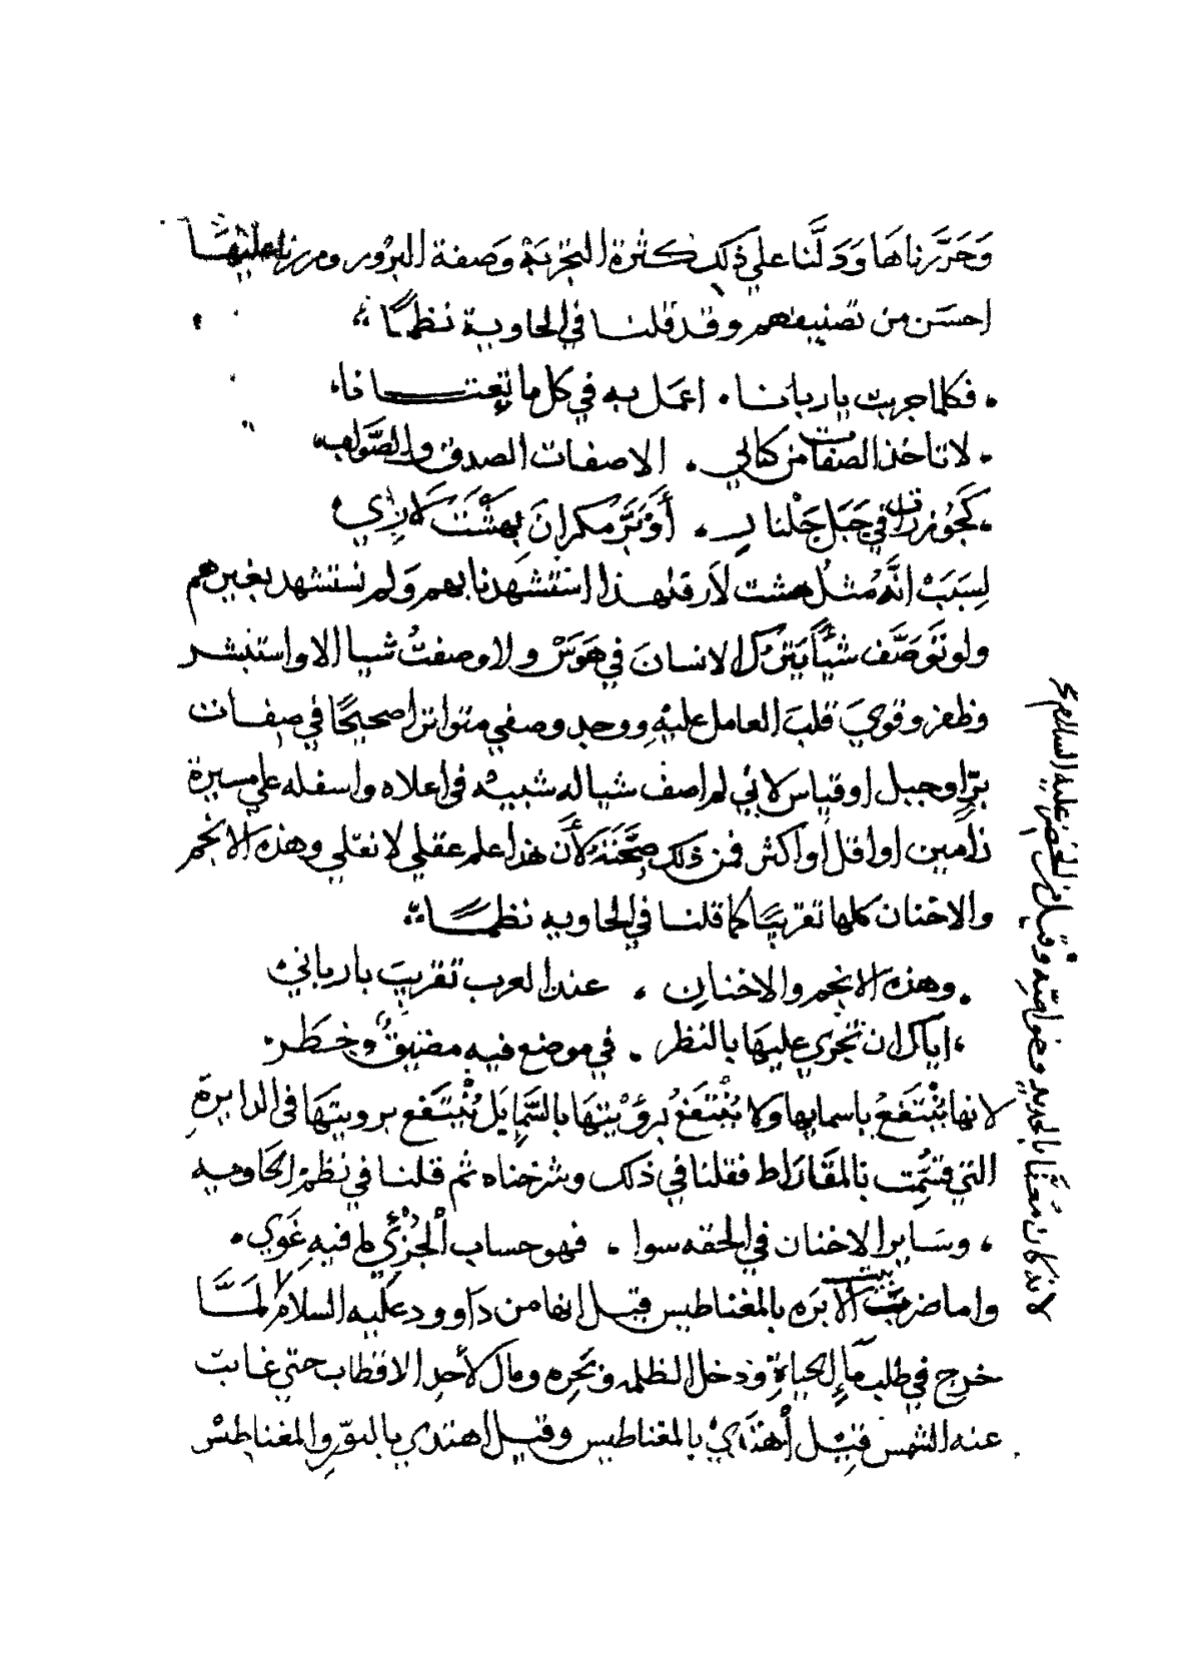 وَحَرَّرناهَا وَدَلَّنا علي ذلك كثرة التجربَة وَصفة البرُور ومررنا عليهَا
احسَن من تصنيفهم وقد قلنا في الحاوية نظمًا
فكلما جربت يا ربانا . اعمل به في كل ما
لا تاخذ الصفات من كتابي . الا صفات الصدق والصَّواب
في جَبَل جَلْنار . أوْ بَرَّ مكران بِهَشْتَ لارِي
لِسَبَبْ انَّهُ مُثلُ هشت لار فلهذا استشهَدنا بهم وَلم نستشهد بغيرهم
ولو نَوَصَّف شيًّا يَترُك الانسانَ في هَوَسْ ولا وصفتُ شيا الا واستبشر
وظفر وقويَ قلبَ العامل عليهِ ووجد وصفي متواترا صحيحًا في صفات
برّ او جبل او قياس لاني لم اصف شيا له شبيه في اعلاه واسفله علي مسيرة
زامين او اقل او اكثر فمن ذلك صِحَّته لأن هذا علم عقلي لا نقلي وهذه الانجم
والاخنان كلها تقريبًا كما قلنا في الحاويه نظمًا
وهذه الانجم والاخنان . عند العرب تقريبَ يا رباني
اياك ان تجري عليهَا بالنظر . في موضع فيه مضيق وخطر
لانها يُنْتَفَعُ باسمايها ولا يُنْتَفَعُ برؤيتهَا بل يُنْتَفع برويتهَا في الدايرةِ
التي قسّمت فقلنا في ذلك وشرحناه ثم قلنا في نظم الحاويه
وسَاير الاخنان في الحقه سوا . فهو حساب الجُزْئِي لم فيه غَوِي
واما ضرب بيت الابرَه بالمغناطيس قيل انها من دَاوود عليه السلام لمَّا
خرج في طلب مآء الحياةِ ودخل الظلمه وبَحره ومال لأحد الاقطاب حتي غابت
عنه الشمس قيل أهتدَي بالمغناطيس وقيل اهتدي بالنوّر والمغناطيسْ
لانه كان مُعتنًا بالحديد وخواصّه وقيل من الخضر عليه السلام